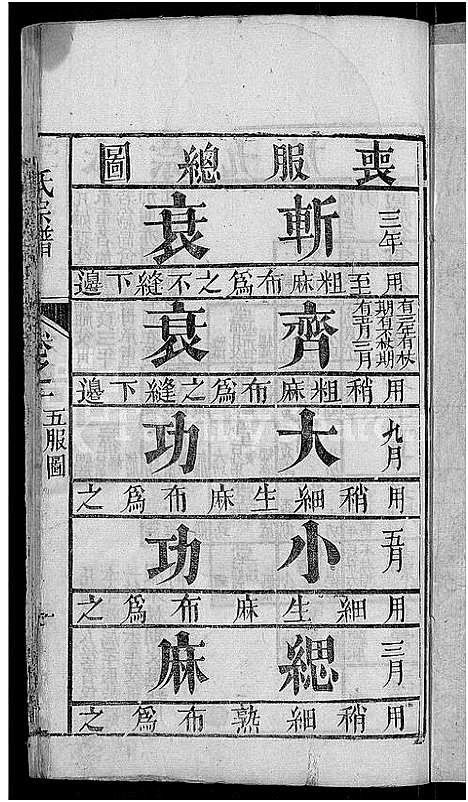 喪服總圖
三年
斬衰
用至粗麻布爲之不縫下邊
有三年有杖
期有不杖期
有五月三月
齊衰
用稍粗麻布爲之縫下邊
九月
大功
用稍細生麻布爲之
五月
小功
用細生麻布爲之
三月
緦麻
用稍細熟布爲之
氏宗譜
卷之一
五服圖